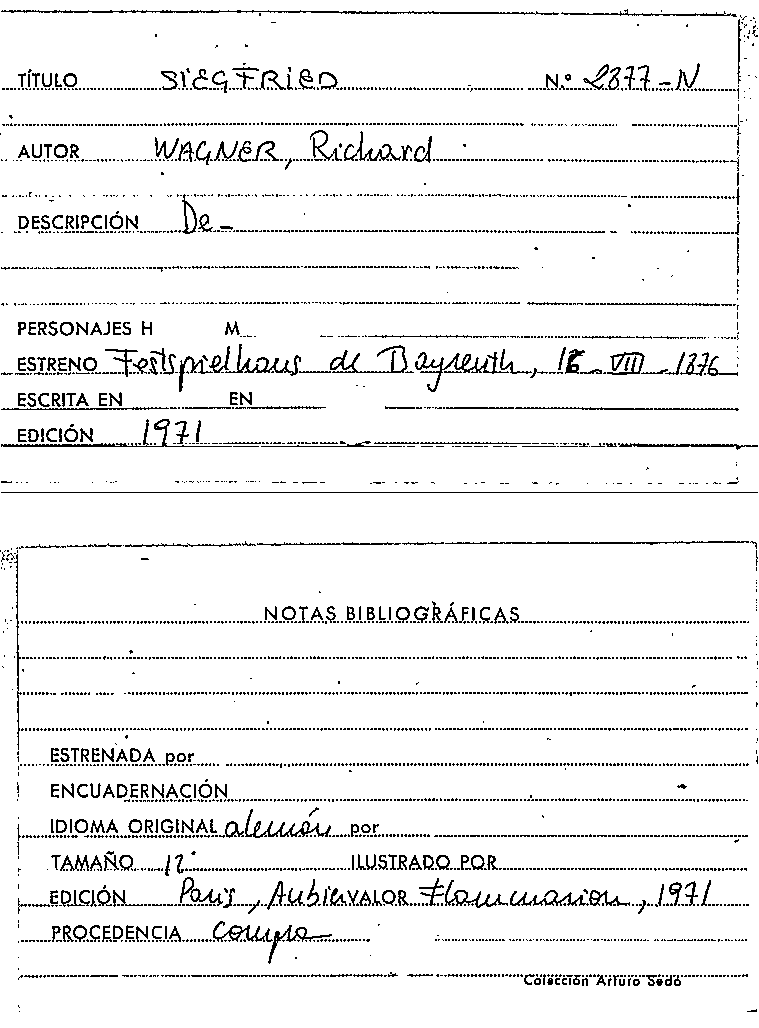 TÍTULO SIEGFRIED N.º 2877-N
AUTOR WAGNER, Richard
DESCRIPCIÓN De_
PERSONAJES H M
ESTRENO Festspielhaus de Bayreuth, 16-VIII-1876
ESCRITA EN EN
EDICIÓN 1971
NOTAS BIBLIOGRÁFICAS
ESTRENADA por
ENCUADERNACIÓN
IDIOMA ORIGINAL alemán por
TAMAÑO 12º ILUSTRADO POR
EDICIÓN Paris, Aubier VALOR Flammarion, 1971
PROCEDENCIA Compra
Colección Arturo Sedó